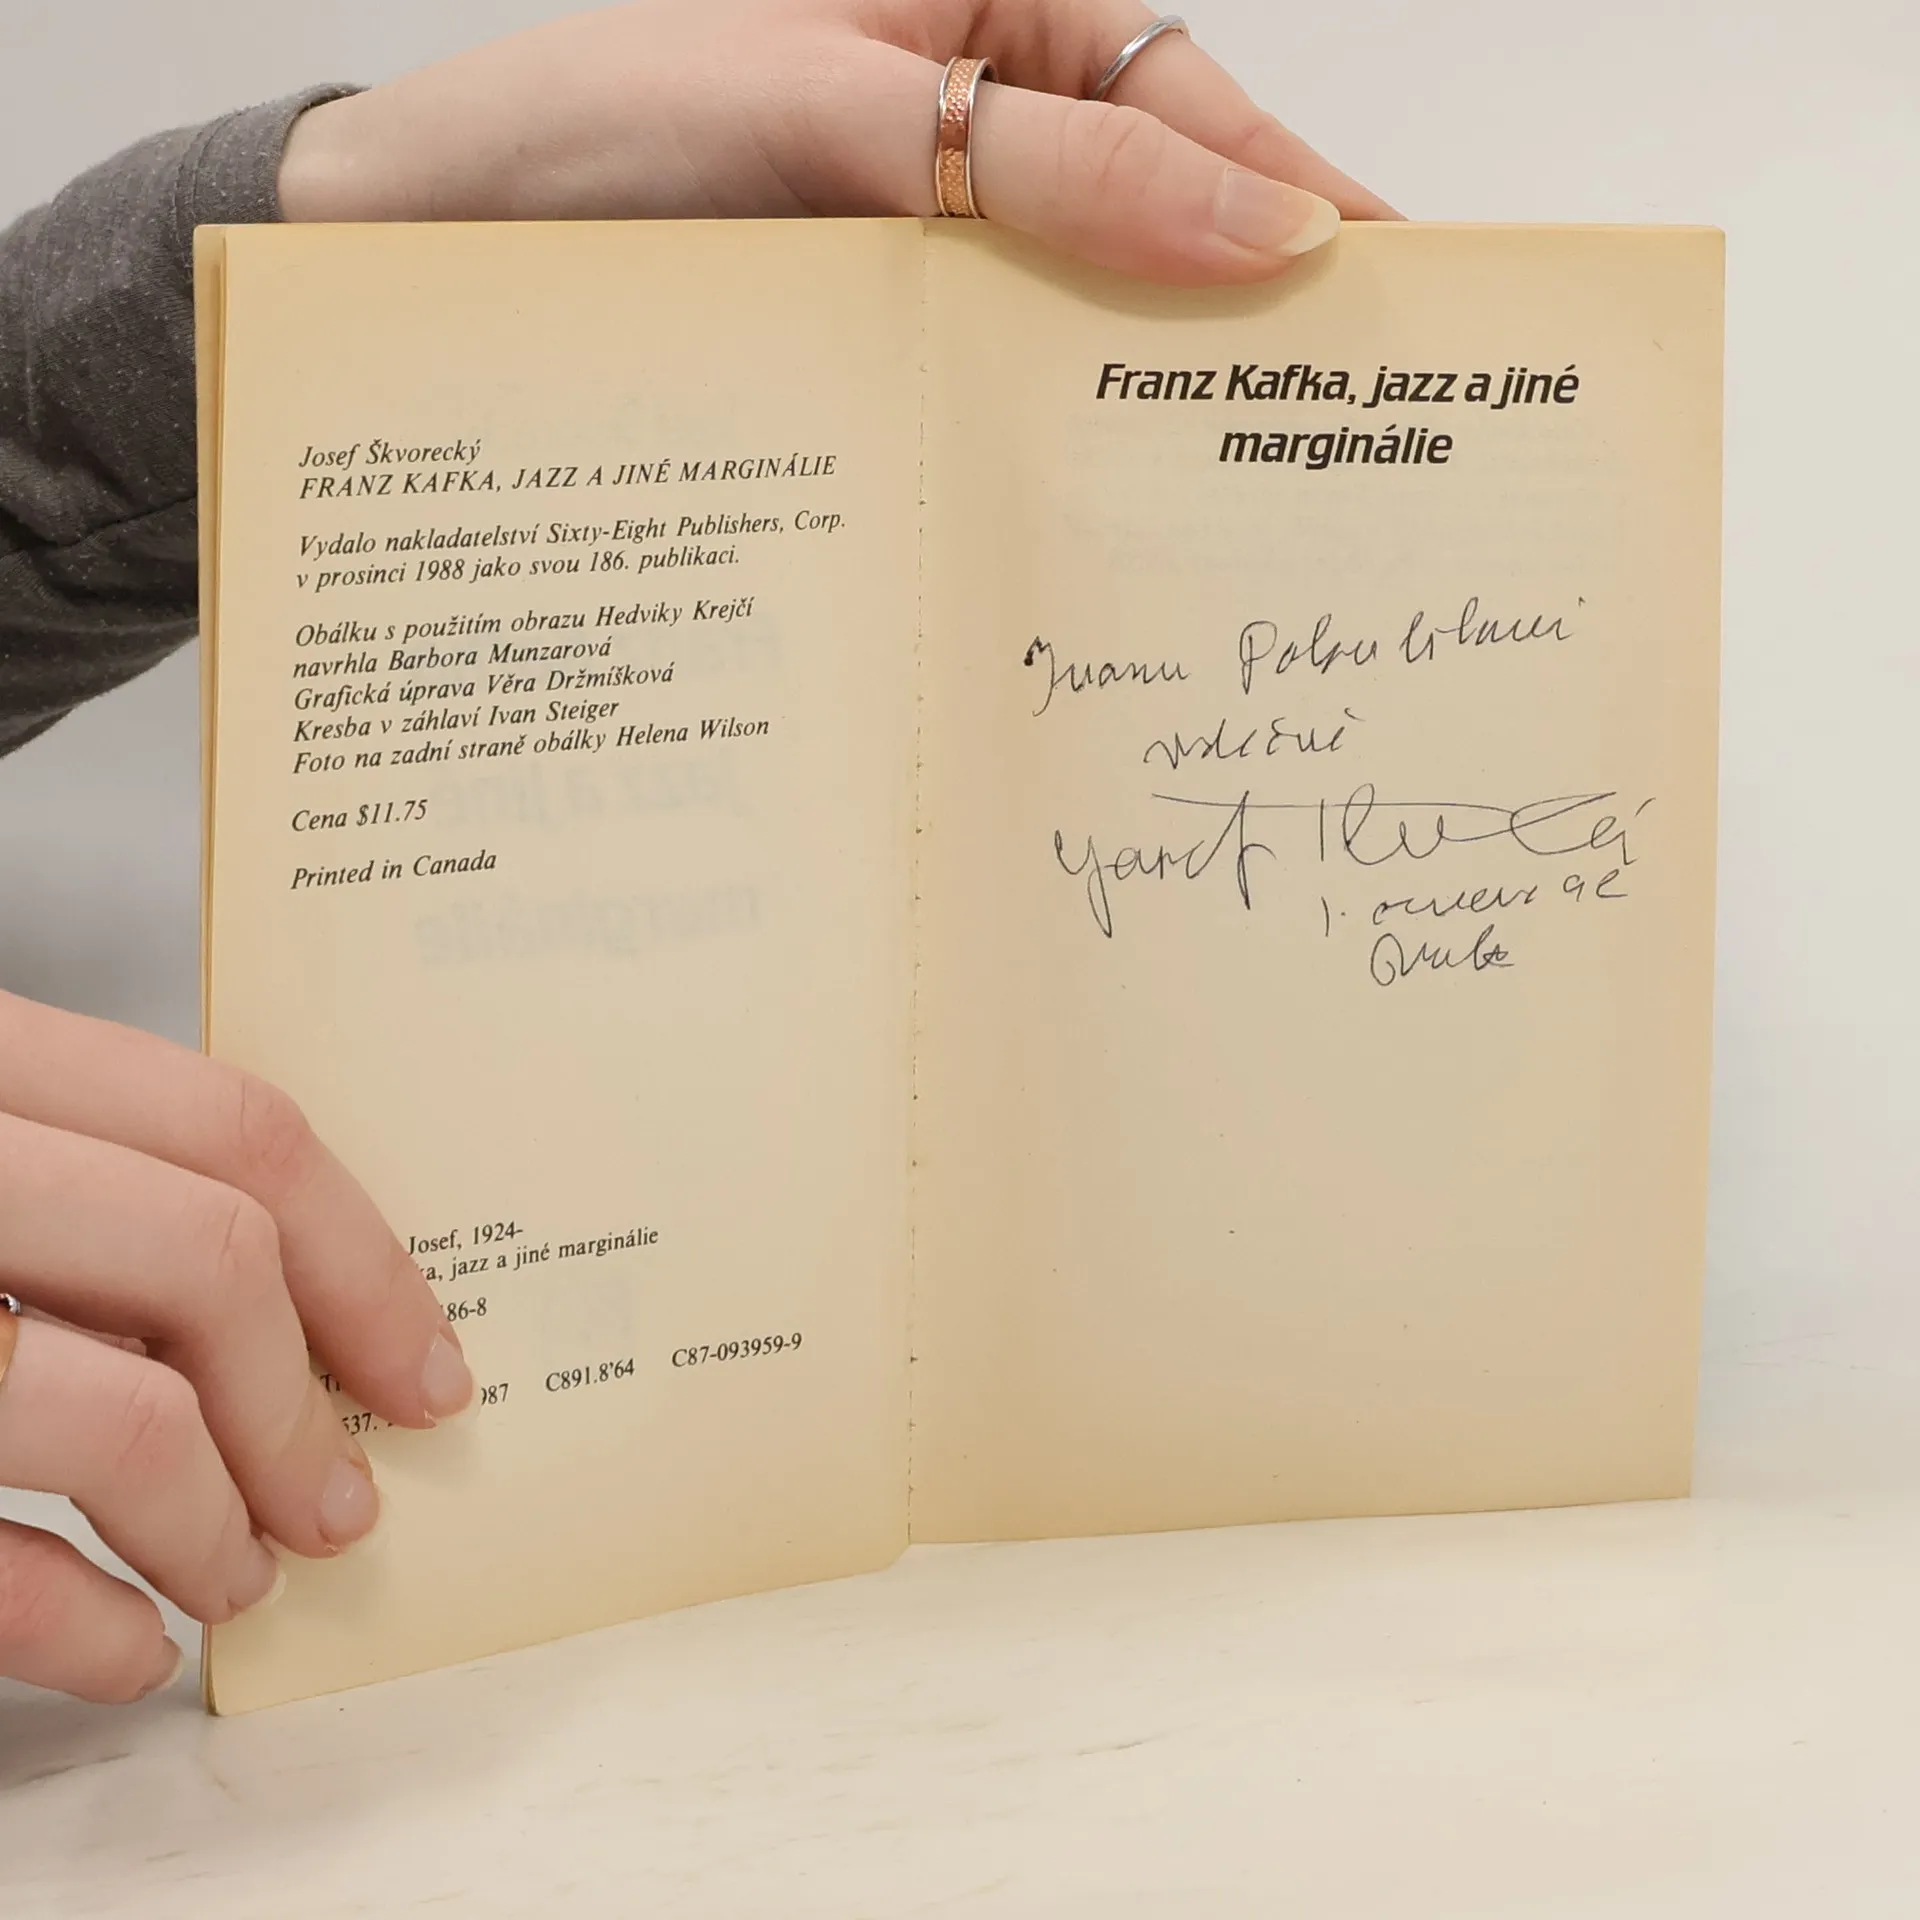 Josef Škvorecký
FRANZ KAFKA, JAZZ A JINÉ MARGINÁLIE
Vydalo nakladatelství Sixty-Eight Publishers, Corp.
v prosinci 1988 jako svou 186. publikaci.
Obálku s použitím obrazu Hedviky Krejčí
navrhla Barbora Munzarová
Grafická úprava Věra Držmíšková
Kresba v záhlaví Ivan Steiger
Foto na zadní straně obálky Helena Wilson
Cena $11.75
Printed in Canada
Josef, 1924-
a, jazz a jiné marginálie
86-8
987 C891.8'64 C87-093959-9
537.
Franz Kafka, jazz a jiné
marginálie
Ivanu
vděčně
Josef
1. 92